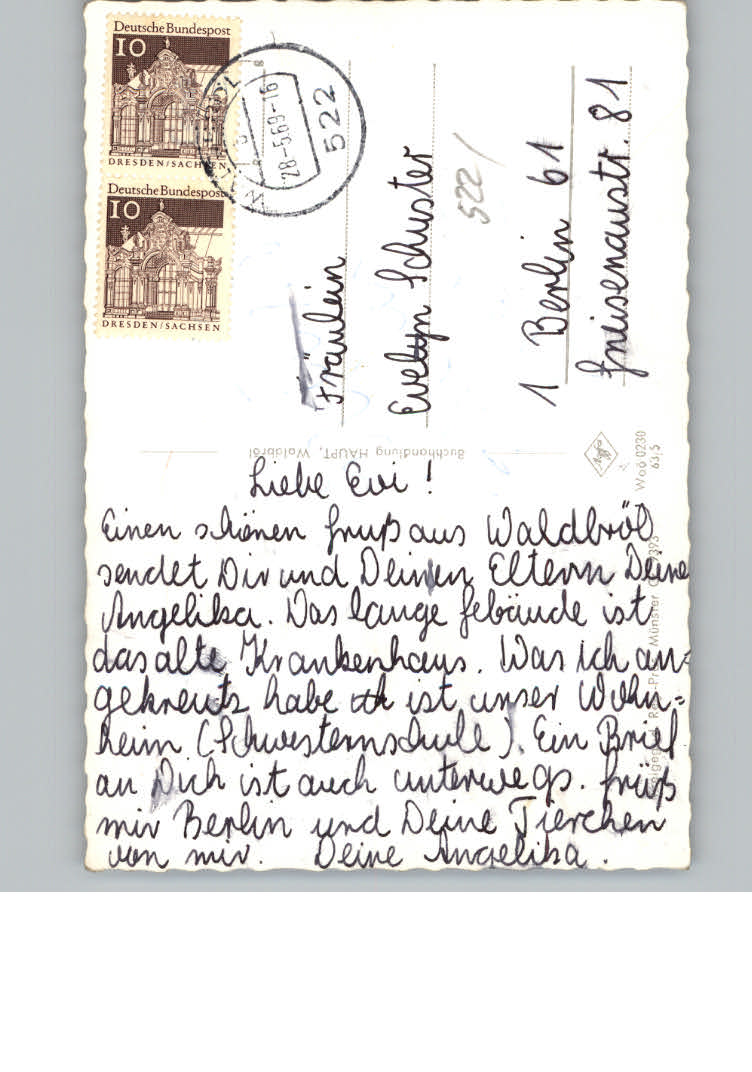 Deutsche Bundespost
10
DRESDEN/SACHSEN
Deutsche Bundespost
10
DRESDEN/SACHSEN
28-5.69-16
522
Fräulein
Evelyn Schuster
522/
1 Berlin 61
Gneisenaustr. 81
Buchhandlung HAUPT, Waldbröl
Woö 0230
63,5
Liebe Evi!
Einen schönen Gruß aus Waldbröl
sendet Dir und Deinen Eltern Deine
Angelika. Das lange Gebäude ist
das alte Krankenhaus. Was ich an=
gekreutz habe ist unser Wohn=
heim (Schwesternschule). Ein Brief
an Dich ist auch unterwegs. Grüß
mir Berlin und Deine Tierchen
von mir. Deine Angelika.